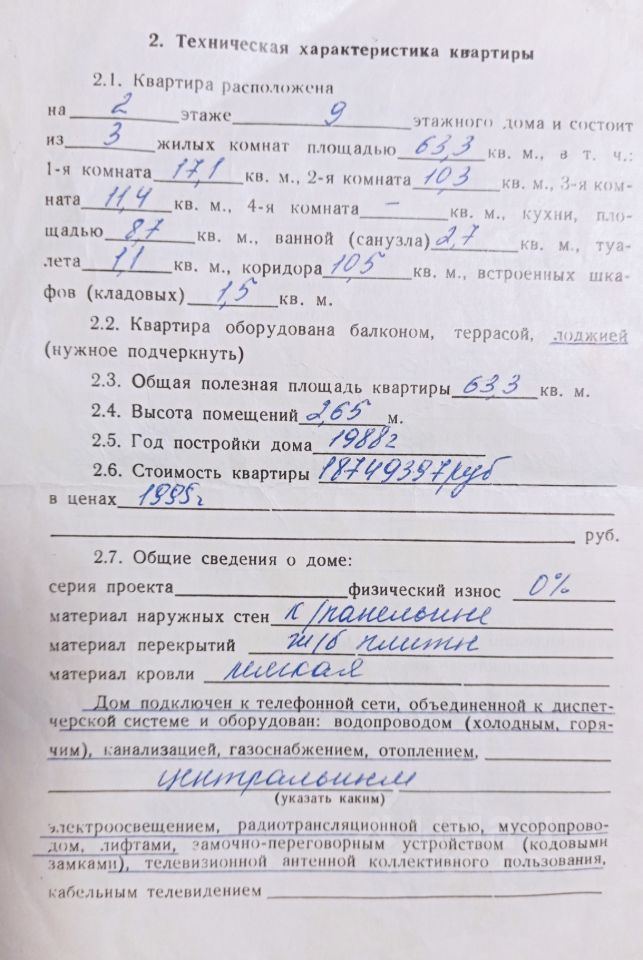 2. Техническая характеристика квартиры
2.1. Квартира расположена
на 2 этаже 9 этажного дома и состоит
из 3 жилых комнат площадью 63,3 кв. м., в т. ч.:
1-я комната 17,1 кв. м., 2-я комната 10,3 кв. м., 3-я ком-
ната 11,4 кв. м., 4-я комната – кв. м., кухни, пло-
щадью 8,7 кв. м., ванной (санузла) 2,7 кв. м., туа-
лета 1,1 кв. м., коридора 10,5 кв. м., встроенных шка-
фов (кладовых) 1,5 кв. м.
2.2. Квартира оборудована балконом, террасой, лоджией
(нужное подчеркнуть)
2.3. Общая полезная площадь квартиры 63,3 кв. м.
2.4. Высота помещений 2,65 м.
2.5. Год постройки дома 1988г
2.6. Стоимость квартиры 18749397руб
в ценах 1995г
руб.
2.7. Общие сведения о доме:
серия проекта физический износ 0%
материал наружных стен к/панельные
материал перекрытий ж/б плиты
материал кровли мягкая
Дом подключен к телефонной сети, объединенной к диспет-
черской системе и оборудован: водопроводом (холодным, горя-
чим), канализацией, газоснабжением, отоплением,
центральным
(указать каким)
электроосвещением, радиотрансляционной сетью, мусоропрово-
дом, лифтами, замочно-переговорным устройством (кодовыми
замками), телевизионной антенной коллективного пользования,
кабельным телевидением